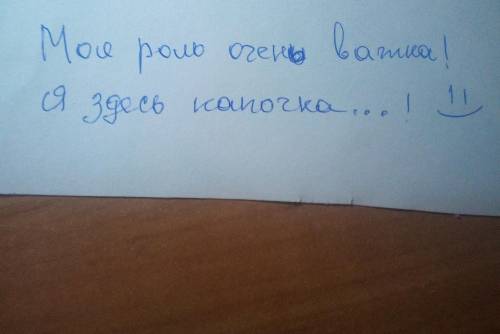 Моя роль очень важна!
Я здесь капочка...!